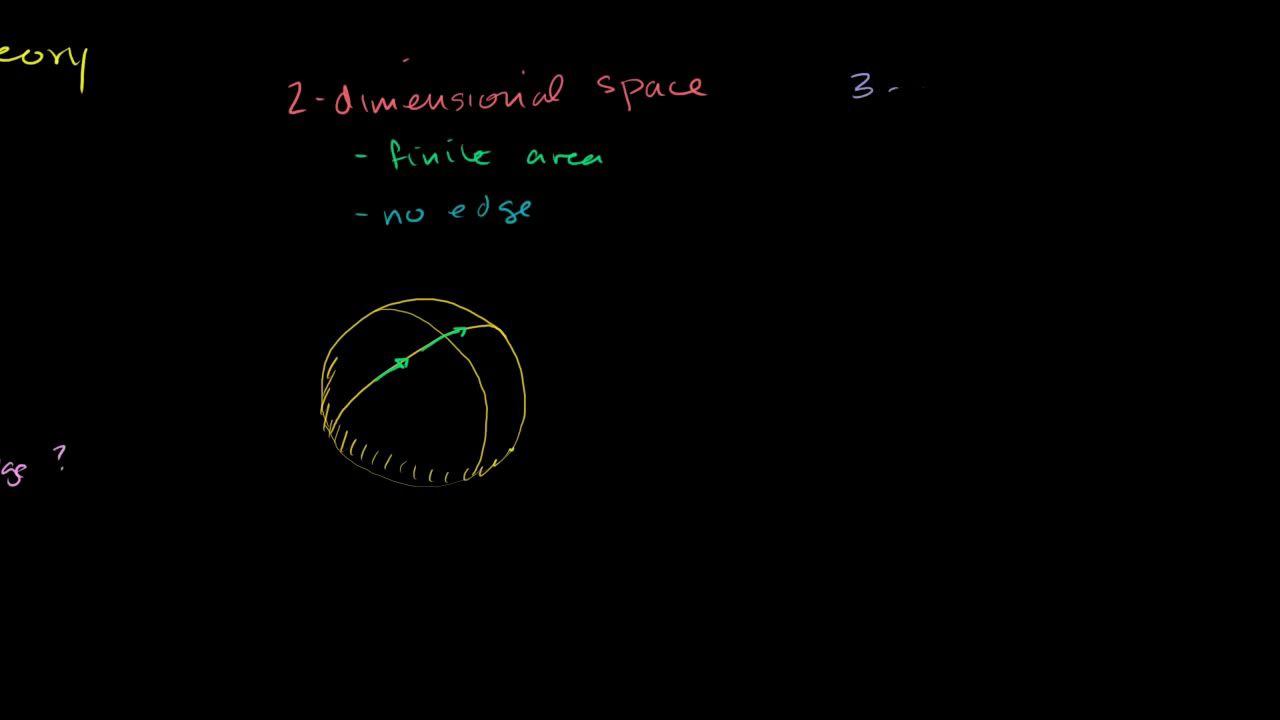 eory
2-dimensional space
3-
- finite area
- no edge
ge ?